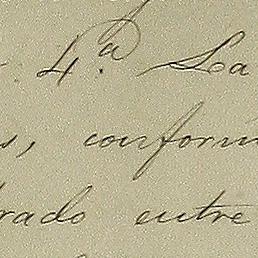 4.ª La
s, conform
rado entre